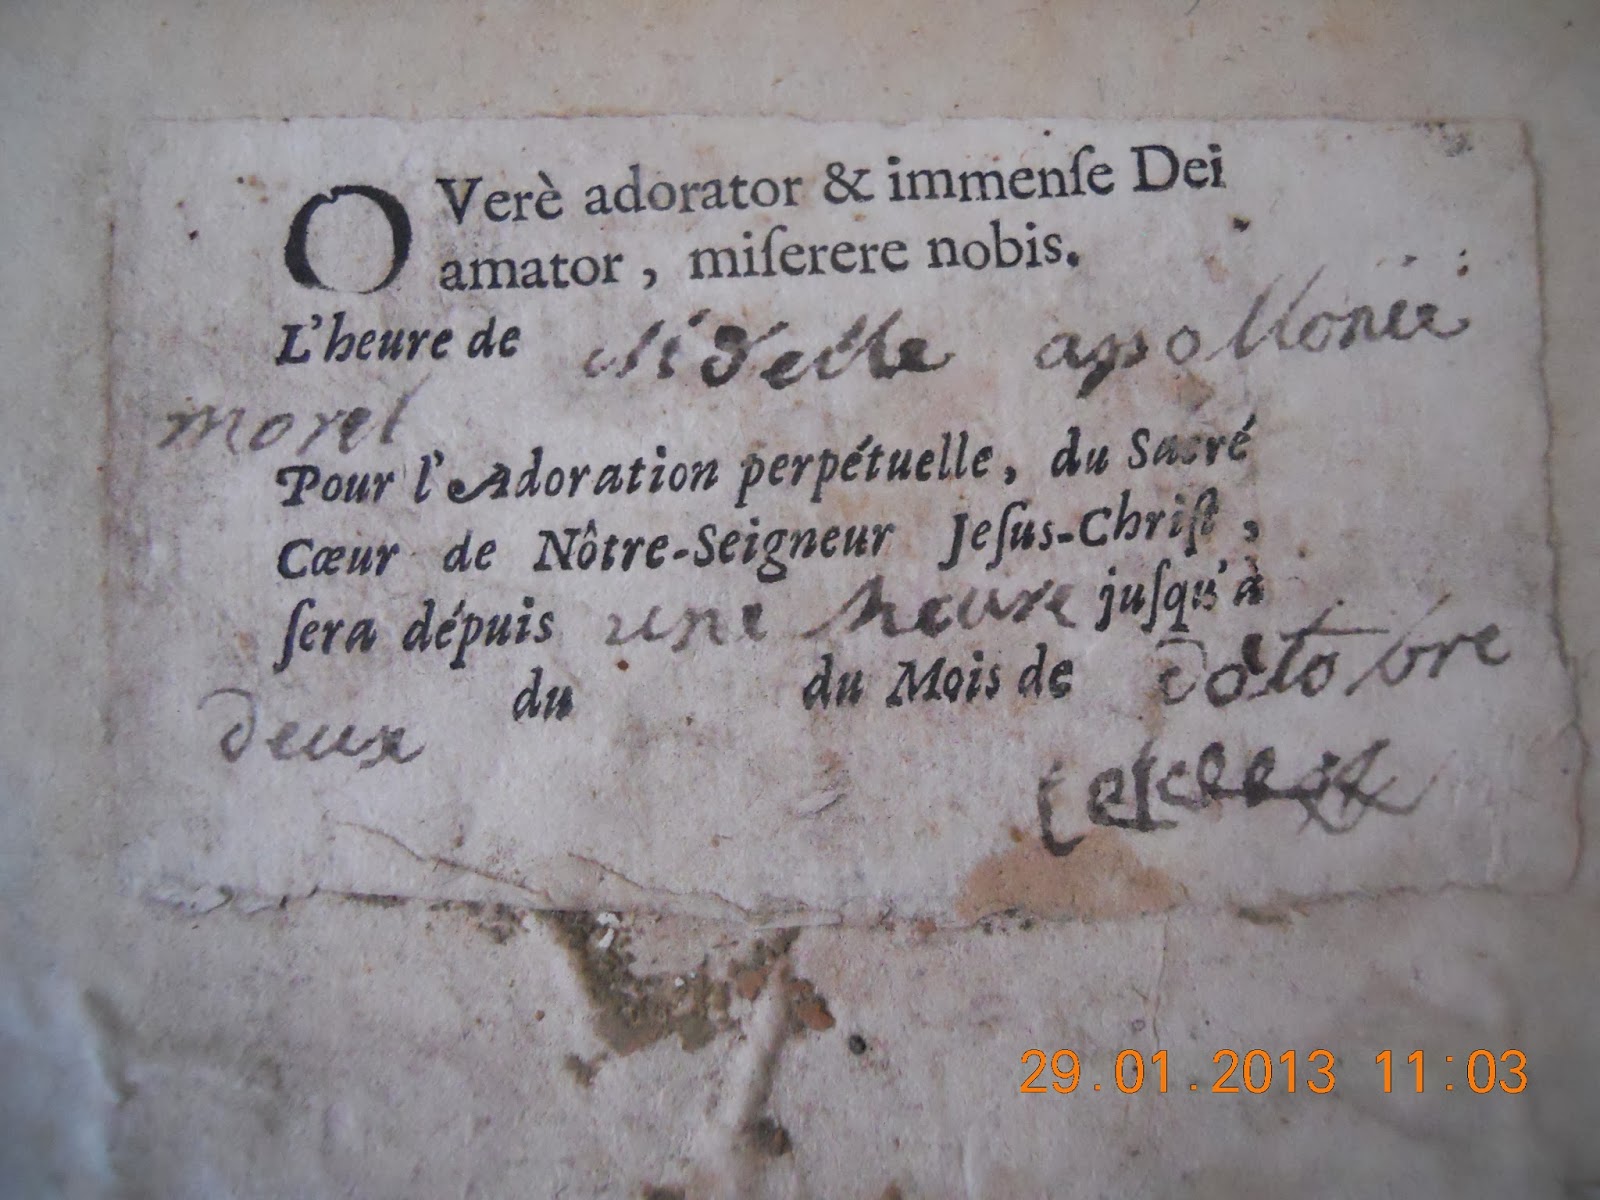 O Verè adorator & immenſe Dei
amator, miſerere nobis.
L'heure de apollonie
morel
Pour l'Adoration perpétuelle, du Sacré
Cœur de Nôtre-Seigneur Jeſus-Chriſt,
ſera dépuis une heure juſqu'à
du du Mois de doctobre
deux
29.01.2013 11:03